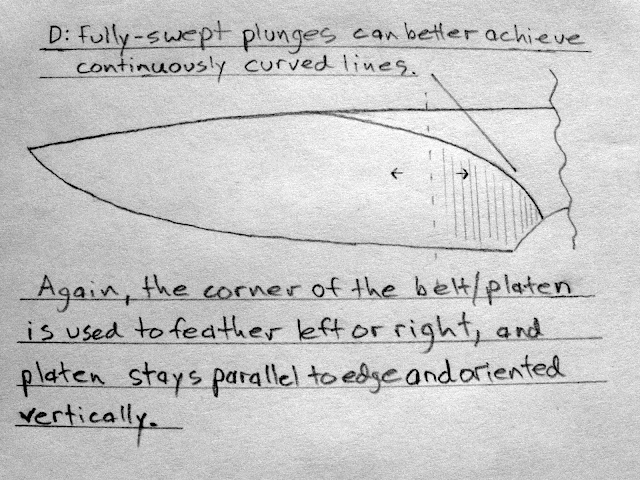 D: Fully-swept plunges can better achieve
continuously curved lines.
Again, the corner of the belt/platen
is used to feather left or right, and
platen stays parallel to edge and oriented
vertically.